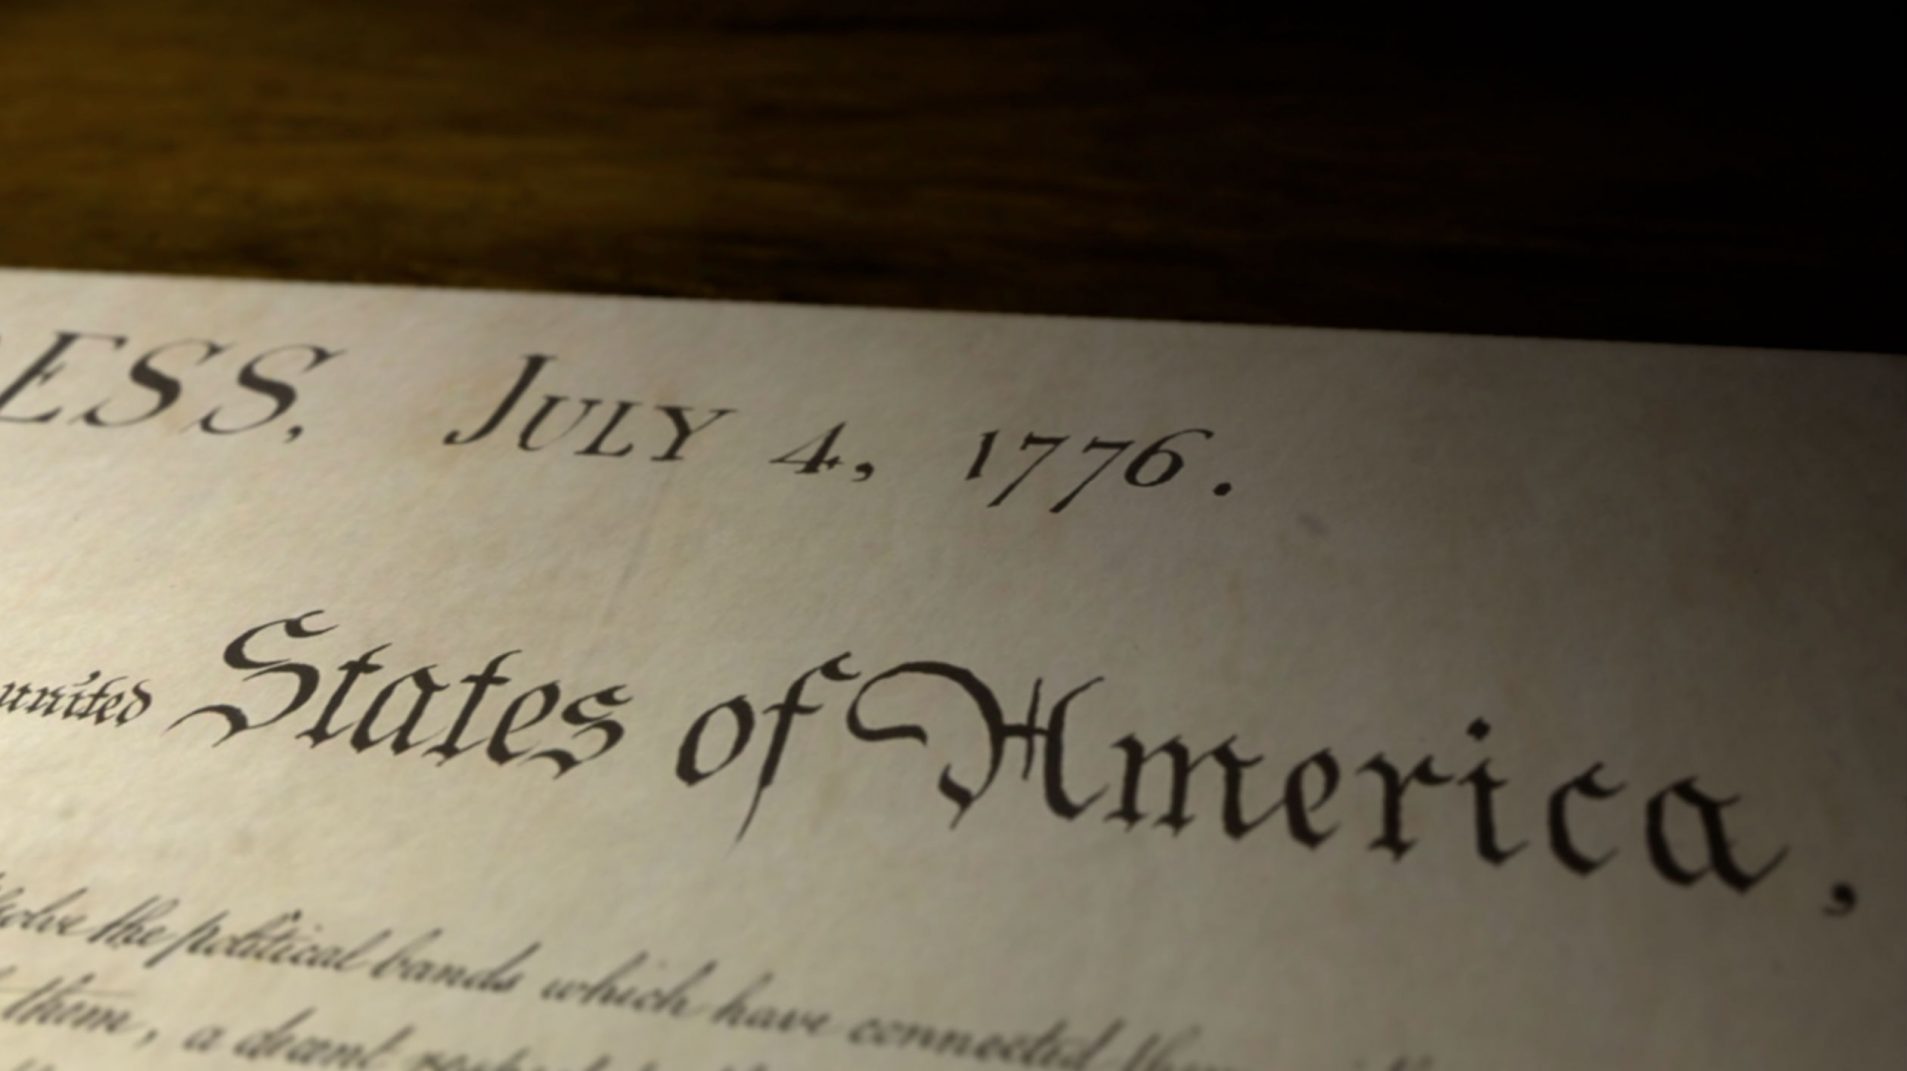 ESS, JULY 4, 1776.
united States of America,
the political bands which have connected
them, a decent respect